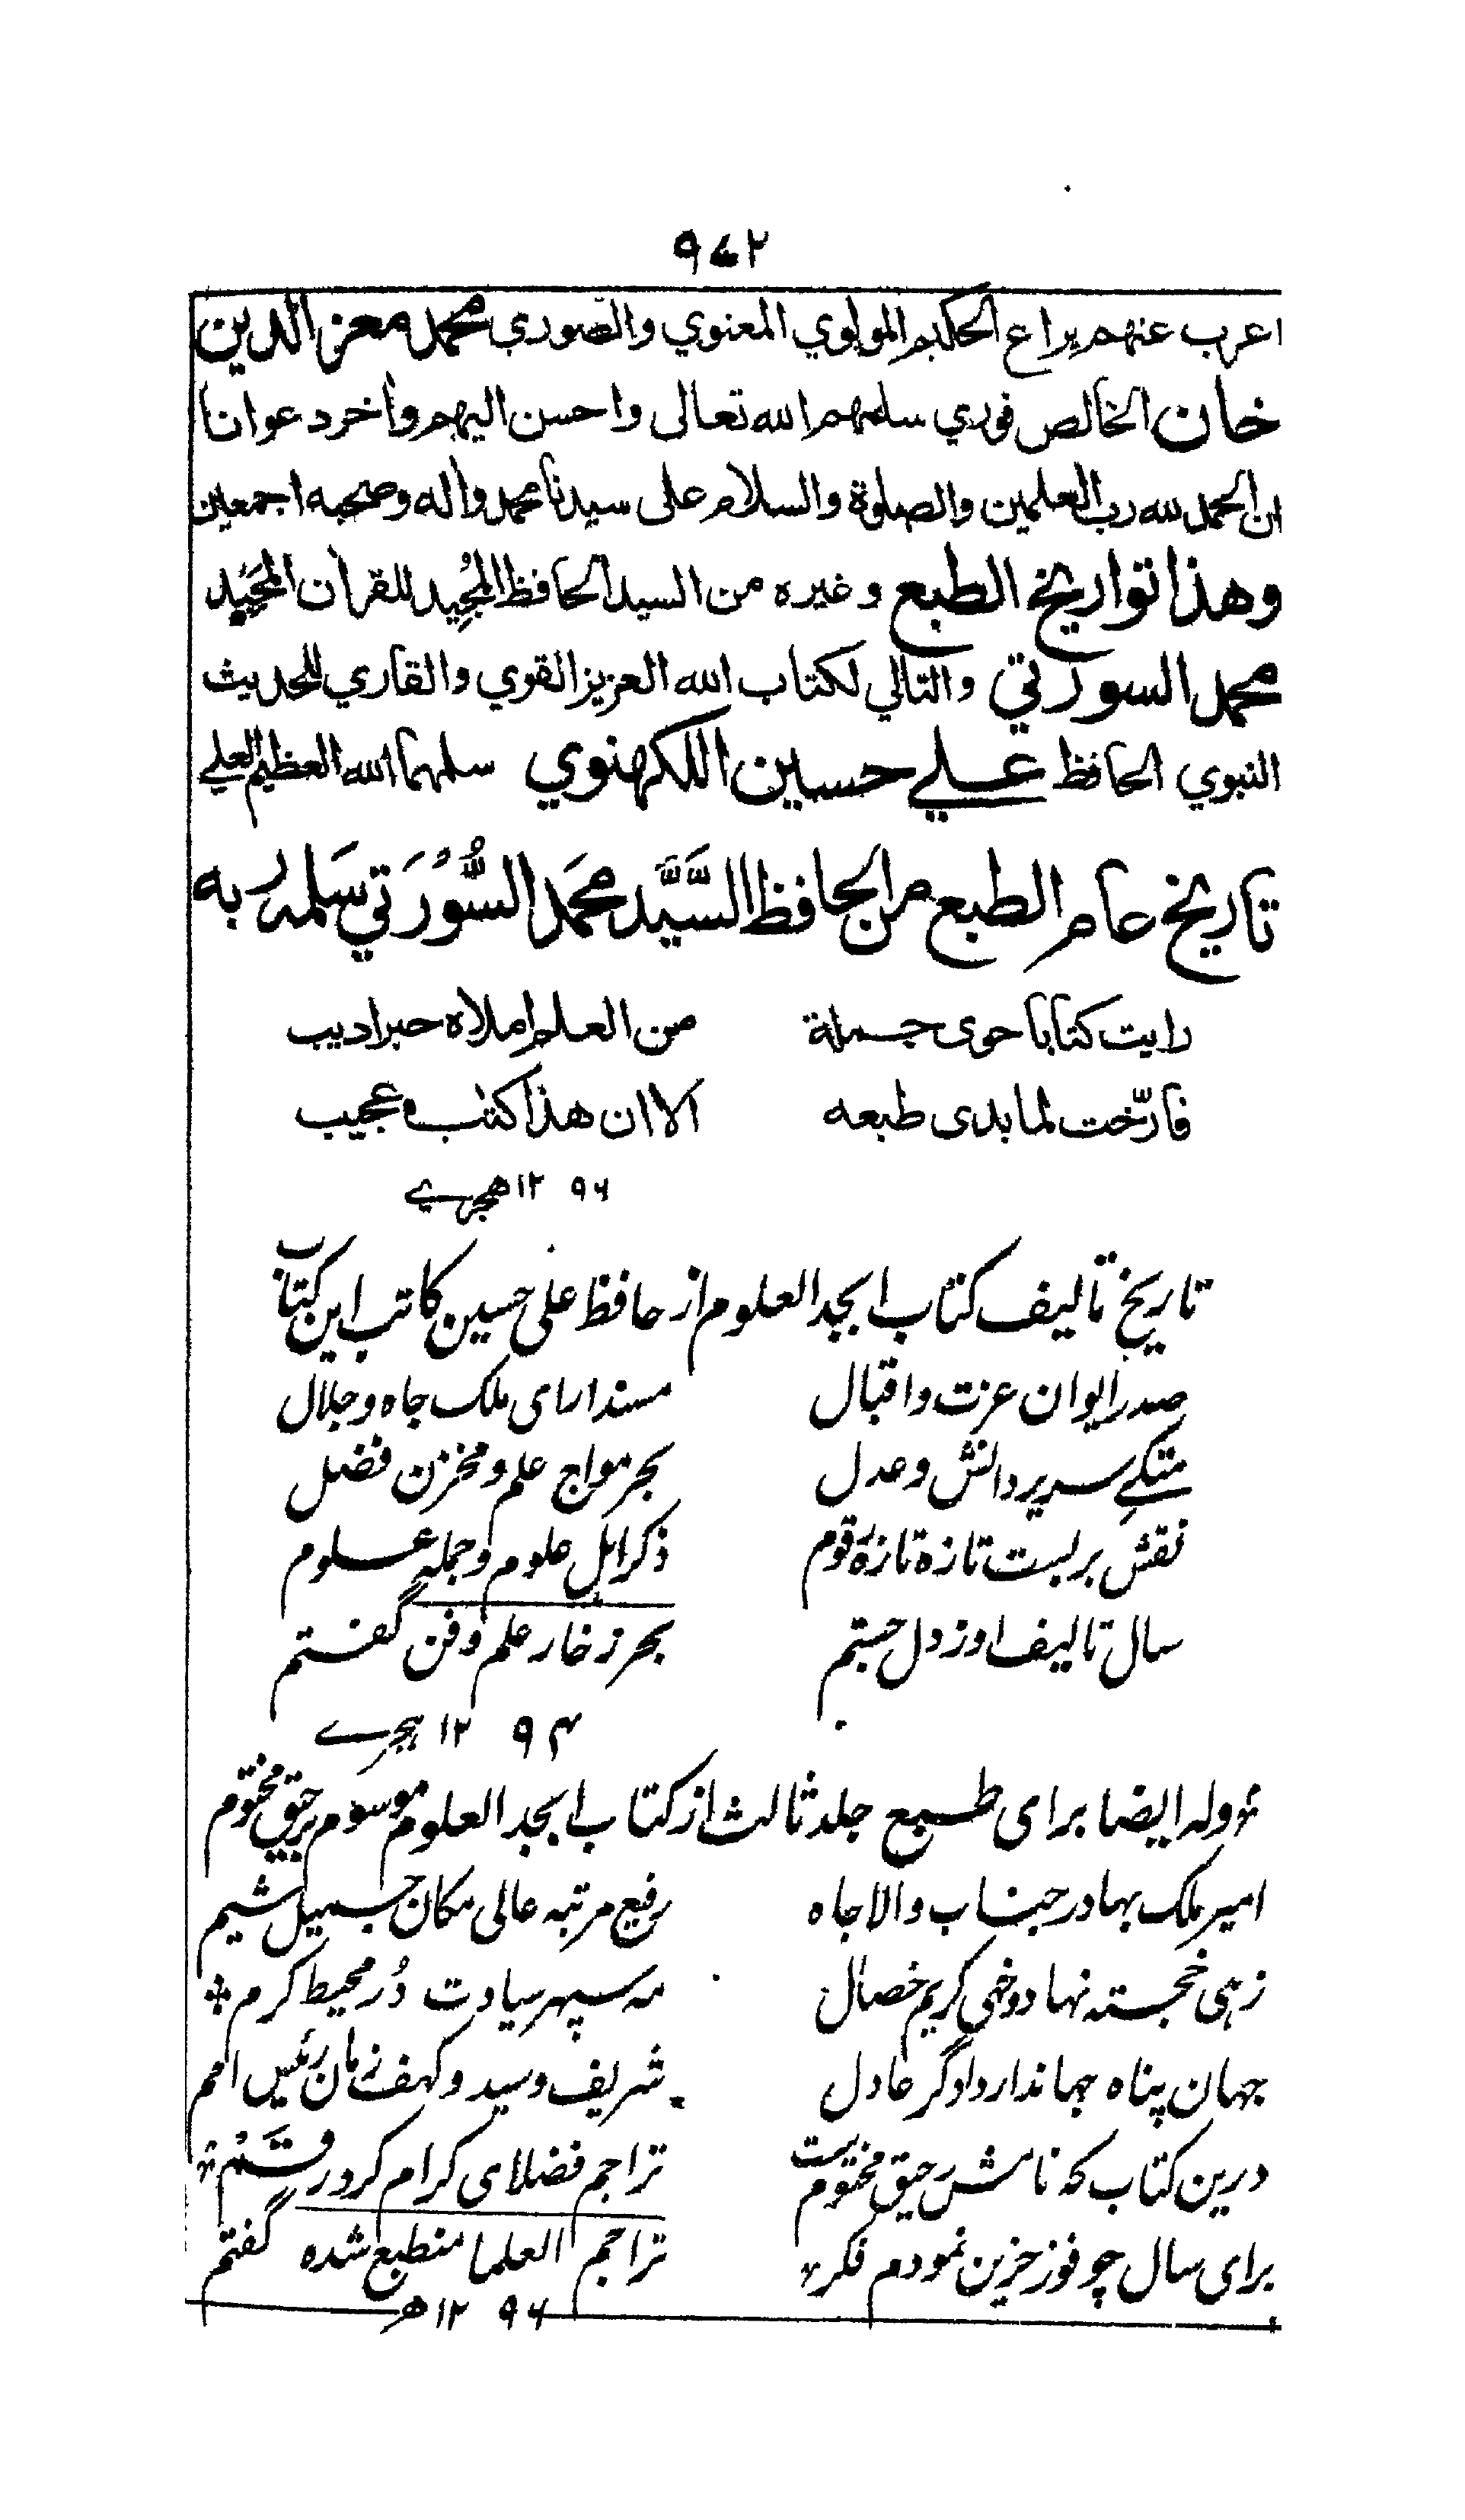 ٩٧٢
اعرب عنهم يراع الحكيم المولوي المعنوي والصوري محمد معز الدين
خان الخالص فوري سلمهم الله تعالى واحسن اليهم وأخر دعوانا
ان الحمد لله رب العلمين والصلوة والسلام على سيدنا محمد وأله وصحبه اجمعين
وهذا تواريخ الطبع وغيره من السيد الحافظ المجيد للقرأن المجيد
محمد السورتي والتالي لكتاب الله العزيز القوي والقاري للحديث
النبوي الحافظ علي حسين اللكهنوي سلمهما الله العظيم العلي
تاريخ عام الطبع من الحافظ السَّيَّد محمَد السُّوُرَتي سَلمه ربه
رايت كتابا حوى جملة من العلم املاه حبر اديب
فارّخت لما بدى طبعه الا ان هذا كتب عجيب
١٢٩٦ هجري
تاريخ تاليف كتاب ابجد العلوم از حافظ على حسين كاتب اين كتاب
صدر ايوان عزت واقبال مسند اراى ملك جاه وجلال
متكي سرير دانش وعدل بحر مواج علم ومخزن فضل
نقش بربست تازه تازه رقوم ذكر اہل علوم وجمله علوم
سال تاليف او ز دل جستم بحر زخار علم وفن گفتم
١٢٩٤ ہجرے
وله ايضا براى طبع جلد ثالث از كتاب ابجد العلوم موسوم برحيق مختوم
امير ملك بهادر جناب والاجاه رفيع مرتبه عالى مكان جميل شيم
زہى خجسته نهاد و خہى كريم خصال مه سپهر سيادت دُر محيط كرم
جهان پناه جهاندار دادگر عادل شريف وسيد وكهف زمان رئيس امم
درين كتاب كه نامش رحيق مختوم ست تراجم فضلاى كرام كرد رقم
براى سال چو فوز حزين نمودم فكر تراجم العلما منطبع شده گفتم
١٢٩٦ ھ